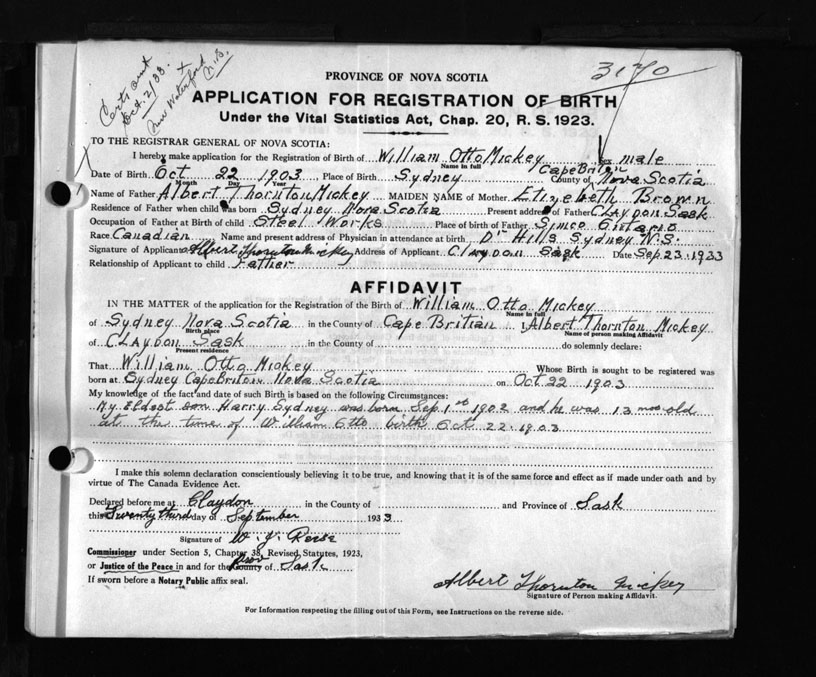 Certs sent
Oct. 2/33.
New Waterford
N.S.
3170
PROVINCE OF NOVA SCOTIA
APPLICATION FOR REGISTRATION OF BIRTH
Under the Vital Statistics Act, Chap. 20, R. S. 1923.
TO THE REGISTRAR GENERAL OF NOVA SCOTIA:
I hereby make application for the Registration of Birth of William Otto Mickey Sex male
Name in full
Cape Briton
Date of Birth Oct 22 1903 Place of Birth Sydney County of Nova Scotia
Month Day Year
Name of Father Albert Thornton Mickey MAIDEN NAME of Mother Elizebeth Brown
Residence of Father when child was born Sydney Nova Scotia Present address of Father Claydon Sask
Occupation of Father at Birth of child Steel Works Place of birth of Father Simco Ontario
Race Canadian Name and present address of Physician in attendance at birth Dr Hills Sydney N.S.
Signature of Applicant Albert Thornton Mickey Address of Applicant Claydon Sask Date Sep 23 1933
Relationship of Applicant to child Father
AFFIDAVIT
IN THE MATTER of the application for the Registration of the Birth of William Otto Mickey
Name in full
of Sydney Nova Scotia in the County of Cape Britian I Albert Thornton Mickey
Birth place Name of person making Affidavit
of Claydon Sask in the County of do solemnly declare:
Present residence
That William Otto Mickey Whose Birth is sought to be registered was
born at Sydney Cape Briton Nova Scotia on Oct 22 1903
My knowledge of the fact and date of such Birth is based on the following Circumstances:
My Eldest son Harry Sydney was born Sep 1st 1902 and he was 13 mos old
at the time of William Otto birth Oct 22 1903
I make this solemn declaration conscientiously believing it to be true, and knowing that it is of the same force and effect as if made under oath and by
virtue of The Canada Evidence Act.
Declared before me at Claydon in the County of and Province of Sask
this Twenty third day of September 1933
Signature of W. J.
Commissioner under Section 5, Chapter 38, Revised Statutes, 1923,
or Justice of the Peace in and for the Prov County of Sask
If sworn before a Notary Public affix seal.
Albert Thornton Mickey
Signature of Person making Affidavit.
For Information respecting the filling out of this Form, see Instructions on the reverse side.